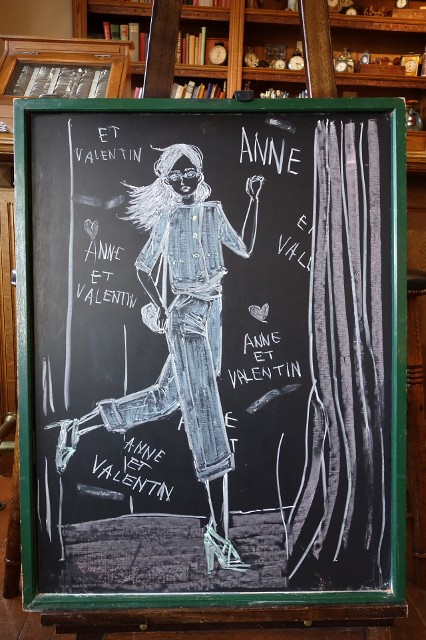 ET
VALENTIN
ANNE
ANNE
ET
VALENTIN
ET
VAL
ANNE
ET
VALENTIN
E
T
ANNE
ET
VALENTIN